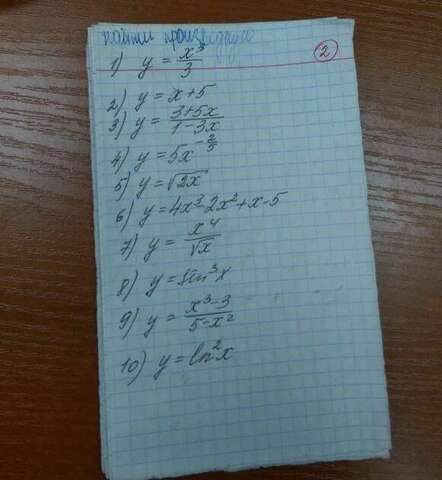 найти производную
2
1) y = x³/3
2) y = x+5
3) y = 3+5x/1-3x
4) y = 5x^-2/5
5) y = √2x
6) y = 4x³-2x²+x-5
7) y = x⁴/√x
8) y = sin³x
9) y = x³-3/5-x²
10) y = ln²x